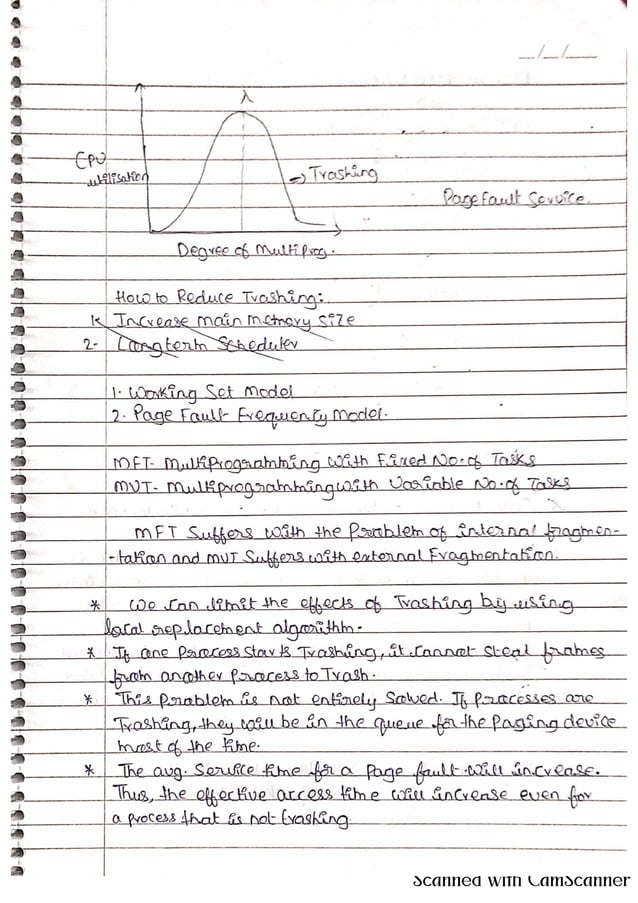 _/_/_
λ
CPU
utilisation
→ Trashing
Page Fault Service.
Degree of Multiprog.
How to Reduce Trashing:
1. Increase main memory size
2- Longterm Scheduler
1. Working Set Model
2. Page Fault Frequency Model.
MFT- Multiprogramming with Fixed No. of Tasks
MVT- Multiprogramming with Variable No. of Tasks
MFT Suffers with the Problem of internal fragmen-
-tation and MVT Suffers with external Fragmentation.
* We can limit the effects of Trashing by using
local replacement algorithm.
* If one Process starts Trashing, it cannot steal frames
from another Process to Trash.
* This Problem is not entirely Solved. If Processes are
Trashing, they will be in the queue for the Paging device
most of the time.
* The avg. Service time for a Page fault will increase.
Thus, the effective access time will increase even for
a process that is not trashing.
Scanned with CamScanner